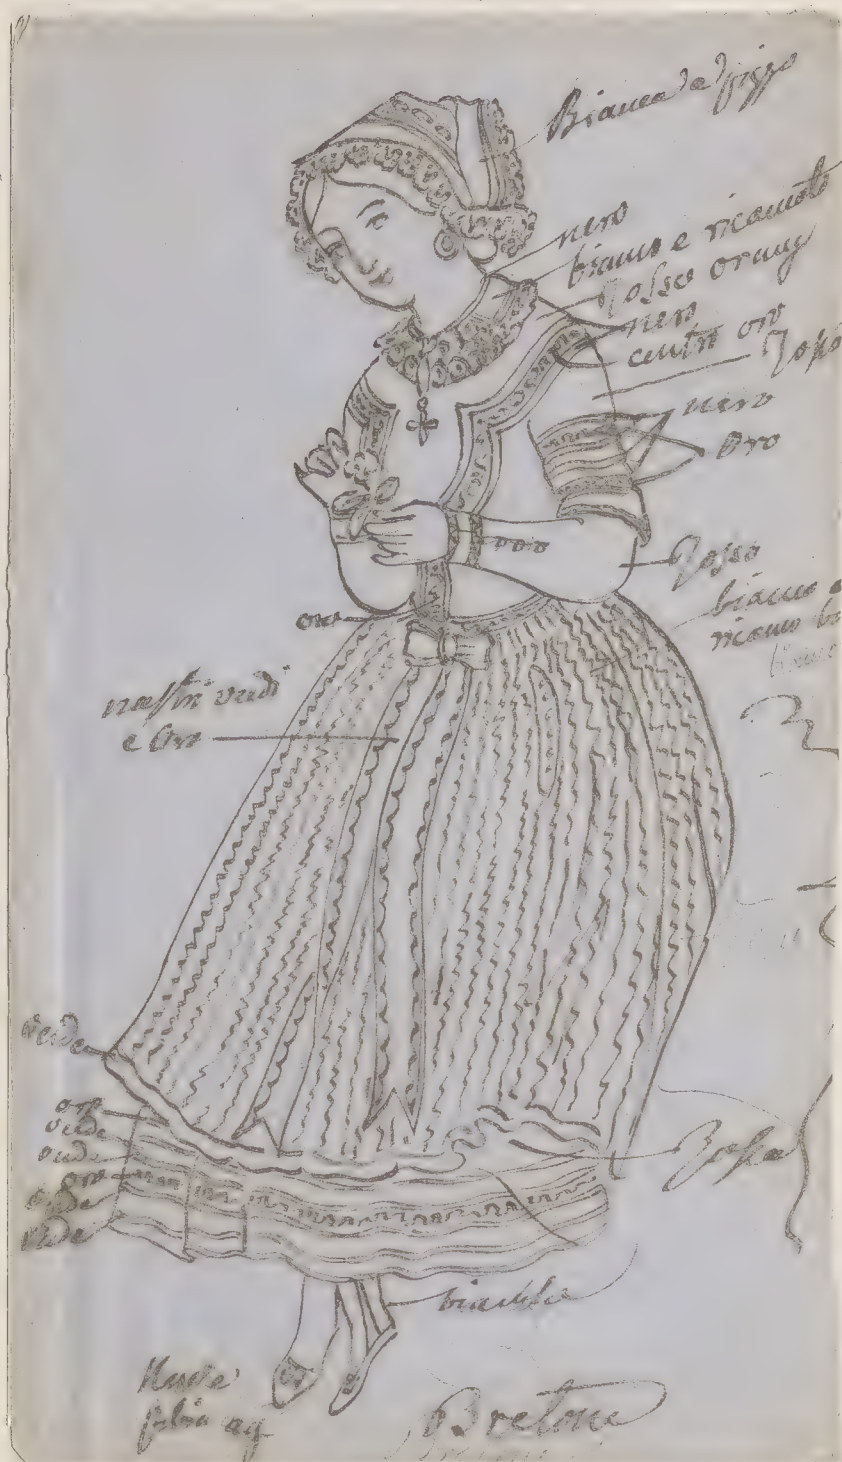 Bianca e pizzo
nero
bianco e ricamato
Rosso orang
nero
centro oro
Rosso
nero
oro
oro
Rosso
bianco e
ricamo
oro
nastri verdi
e oro
verde
oro
verde
verde
oro
verde
verde
Rosa
bianche
Bretone